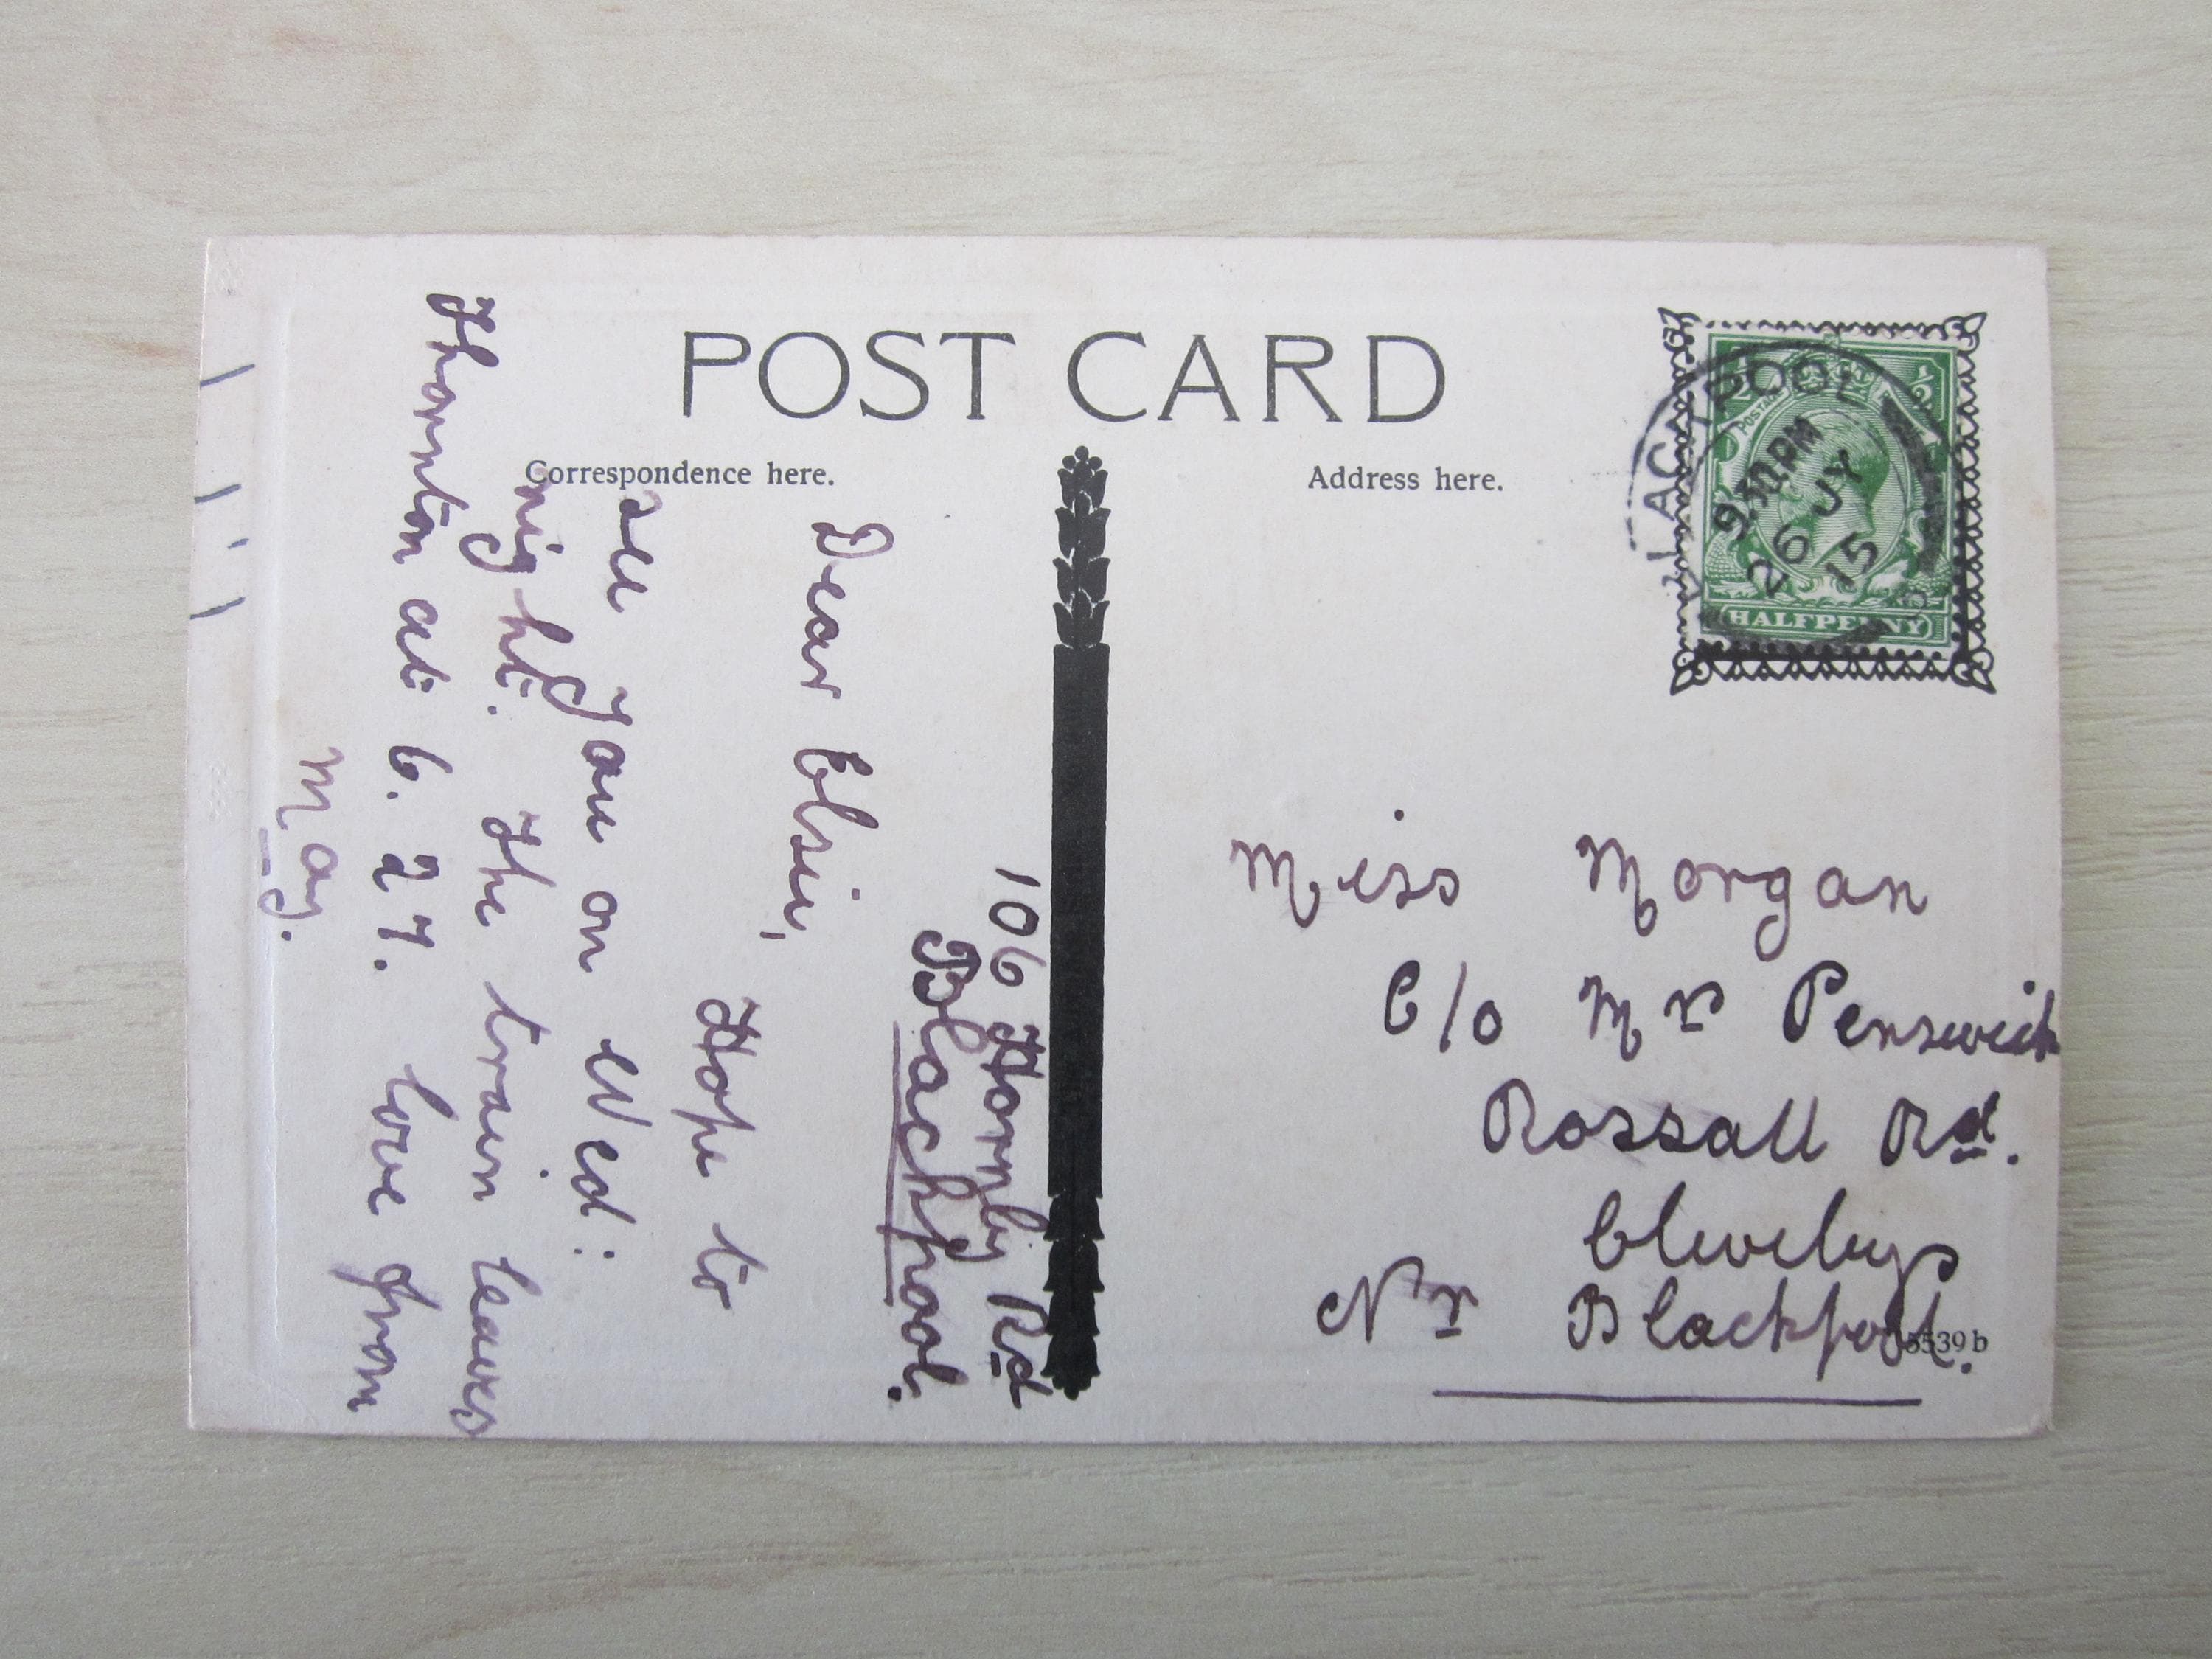 POST CARD
Correspondence here.
Address here.
106 Hornby Rd
Blackpool.
Dear Elsie,
Hope to
see you on Wed:
night. The train leaves
Thornton at 6.27. love from
May.
BLACKPOOL
9.30 PM
26 JY
15
POSTAGE
½ ½
HALFPENNY
Miss Morgan
C/o Mr Penswick
Rossall Rd.
Cleveleys
Nr Blackpool.
5539 b